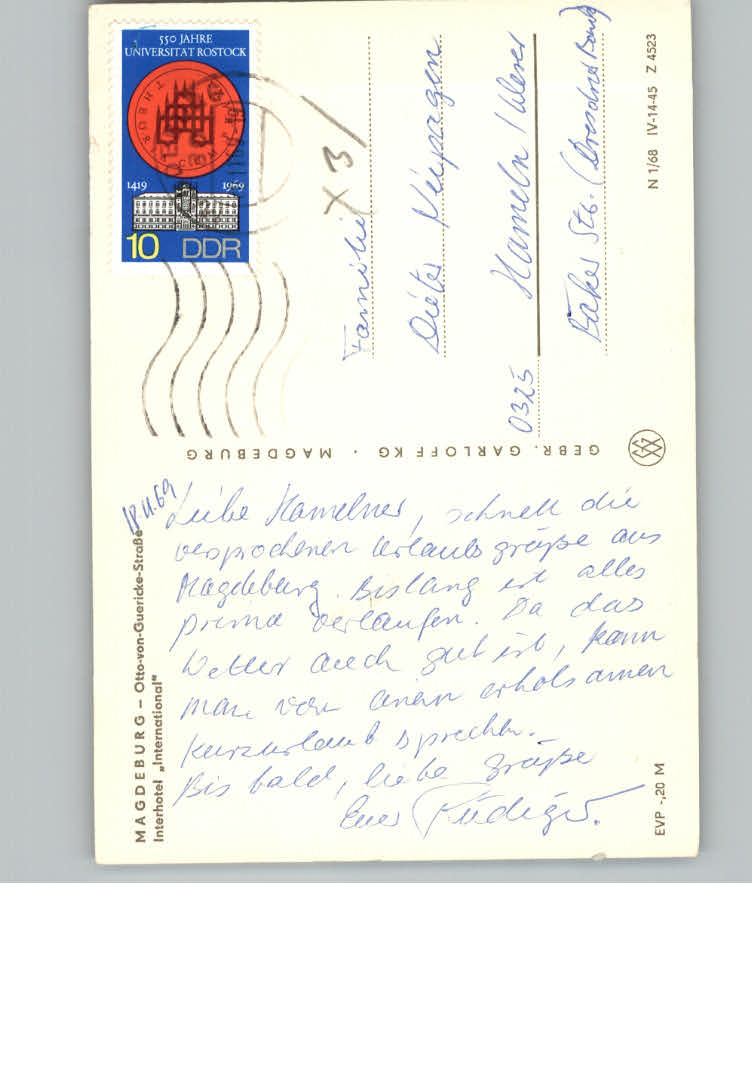 550 JAHRE
UNIVERSITÄT ROSTOCK
1419 1969
10 DDR
X 3/
Familie
Dieter
Hameln / Weser
0325
Bäker Str. (Dresdner Bank)
N 1/68 IV-14-45 Z 4523
GEBR. GARLOFF KG · MAGDEBURG
MAGDEBURG – Otto-von-Guericke-Straße
Interhotel „International“
18.11.69
Liebe Hamelner, schnell die
versprochenen Urlaubsgrüße aus
Magdeburg. Bislang ist alles
prima verlaufen. Da das
Wetter auch gut ist, kann
man von einem erholsamen
Kurzurlaub sprechen.
Bis bald, liebe Grüße
Euer Rüdiger.
EVP -,20 M